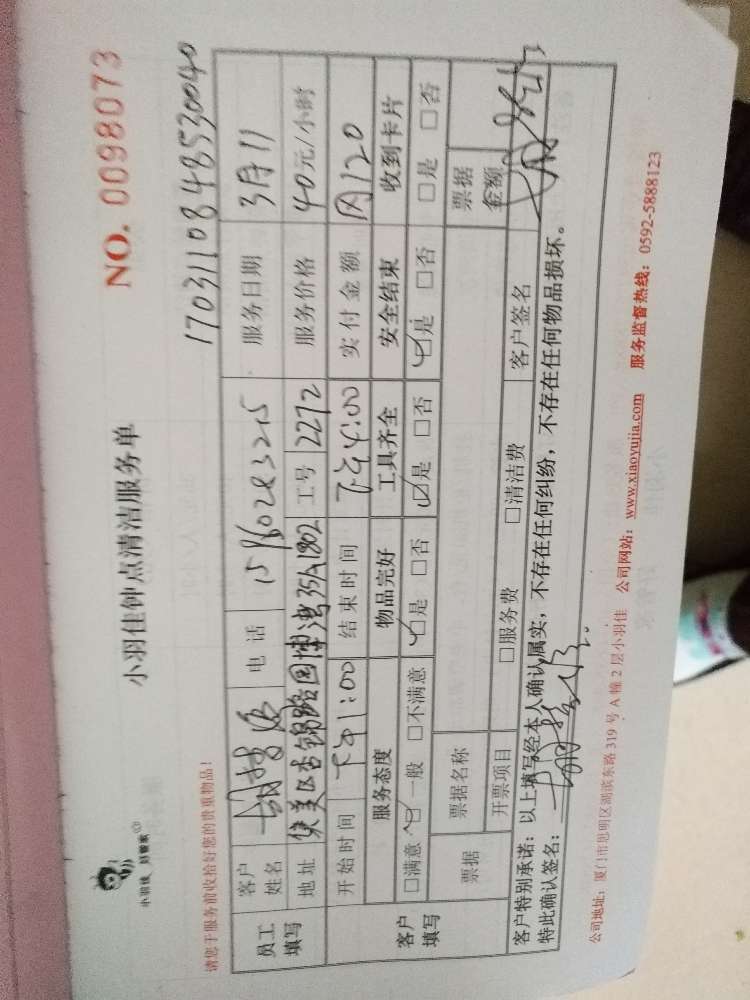 小羽佳 好管家
小羽佳钟点清洁服务单
NO. 0098073
请您于服务前收拾好您的贵重物品！
1703110848530040
员工填写
客户姓名
电话 15960283215
服务日期 3月11
地址 集美区杏锦路园博湾35A1802
工号 2272
服务价格 40元/小时
开始时间 下午1:00
结束时间 下午4:00
实付金额 120
客户填写
服务态度 物品完好 工具齐全 安全结束 收到卡片
□满意 □一般 □不满意 □是 □否 □是 □否 □是 □否 □是 □否
票据 票据名称 票据金额
开票项目 □服务费 □清洁费 客户签名
客户特别承诺：以上填写经本人确认属实，不存在任何纠纷，不存在任何物品损坏。
特此确认签名：
公司地址：厦门市思明区湖滨东路 319 号 A 幢 2 层小羽佳 公司网站：www.xiaoyujia.com 服务监督热线：0592-5888123